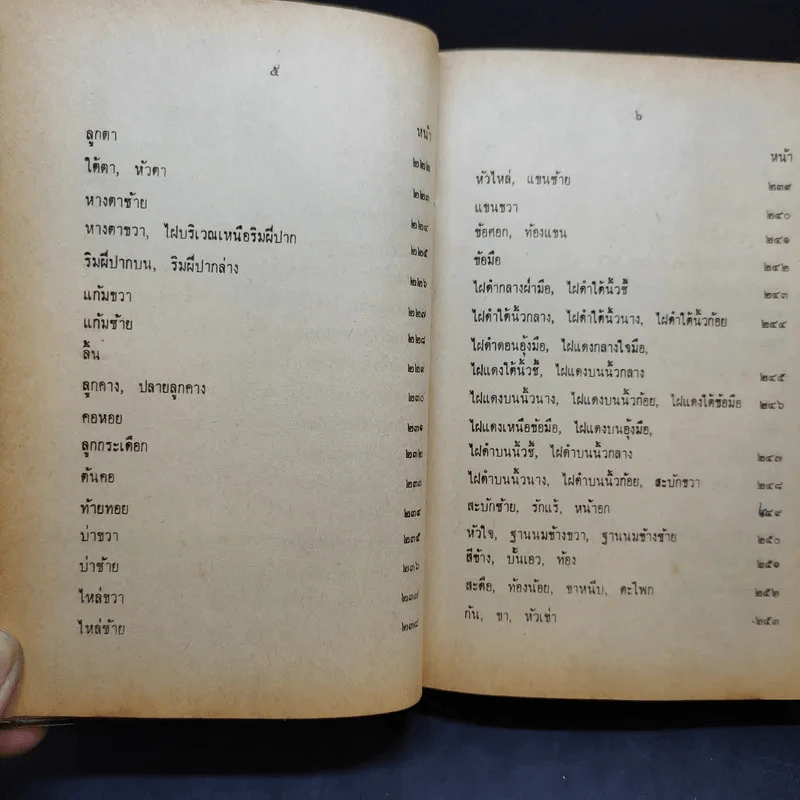 ๕
หน้า
ลูกตา ๒๒๒
ใต้ตา, หัวตา ๒๒๓
หางตาซ้าย ๒๒๔
หางตาขวา, ไฝบริเวณเหนือริมฝีปาก ๒๒๕
ริมฝีปากบน, ริมฝีปากล่าง ๒๒๖
แก้มขวา ๒๒๗
แก้มซ้าย ๒๒๘
ลิ้น ๒๒๙
ลูกคาง, ปลายลูกคาง ๒๓๐
คอหอย ๒๓๑
ลูกกระเดือก ๒๓๒
ต้นคอ ๒๓๓
ท้ายทอย ๒๓๔
บ่าขวา ๒๓๕
บ่าซ้าย ๒๓๖
ไหล่ขวา ๒๓๗
ไหล่ซ้าย ๒๓๘
๖
หน้า
หัวไหล่, แขนซ้าย ๒๓๙
แขนขวา ๒๔๐
ข้อศอก, ท้องแขน ๒๔๑
ข้อมือ ๒๔๒
ไฝดำกลางฝ่ามือ, ไฝดำใต้นิ้วชี้ ๒๔๓
ไฝดำใต้นิ้วกลาง, ไฝดำใต้นิ้วนาง, ไฝดำใต้นิ้วก้อย ๒๔๔
ไฝดำตอนอุ้งมือ, ไฝแดงกลางใจมือ,
ไฝแดงใต้นิ้วชี้, ไฝแดงบนนิ้วกลาง ๒๔๕
ไฝแดงบนนิ้วนาง, ไฝแดงบนนิ้วก้อย, ไฝแดงใต้ข้อมือ ๒๔๖
ไฝแดงเหนือข้อมือ, ไฝแดงบนอุ้งมือ,
ไฝดำบนนิ้วชี้, ไฝดำบนนิ้วกลาง ๒๔๗
ไฝดำบนนิ้วนาง, ไฝดำบนนิ้วก้อย, สะบักขวา ๒๔๘
สะบักซ้าย, รักแร้, หน้าอก ๒๔๙
หัวใจ, ฐานนมข้างขวา, ฐานนมข้างซ้าย ๒๕๐
สีข้าง, บั้นเอว, ท้อง ๒๕๑
สะดือ, ท้องน้อย, ขาหนีบ, ตะโพก ๒๕๒
ก้น, ขา, หัวเข่า ๒๕๓